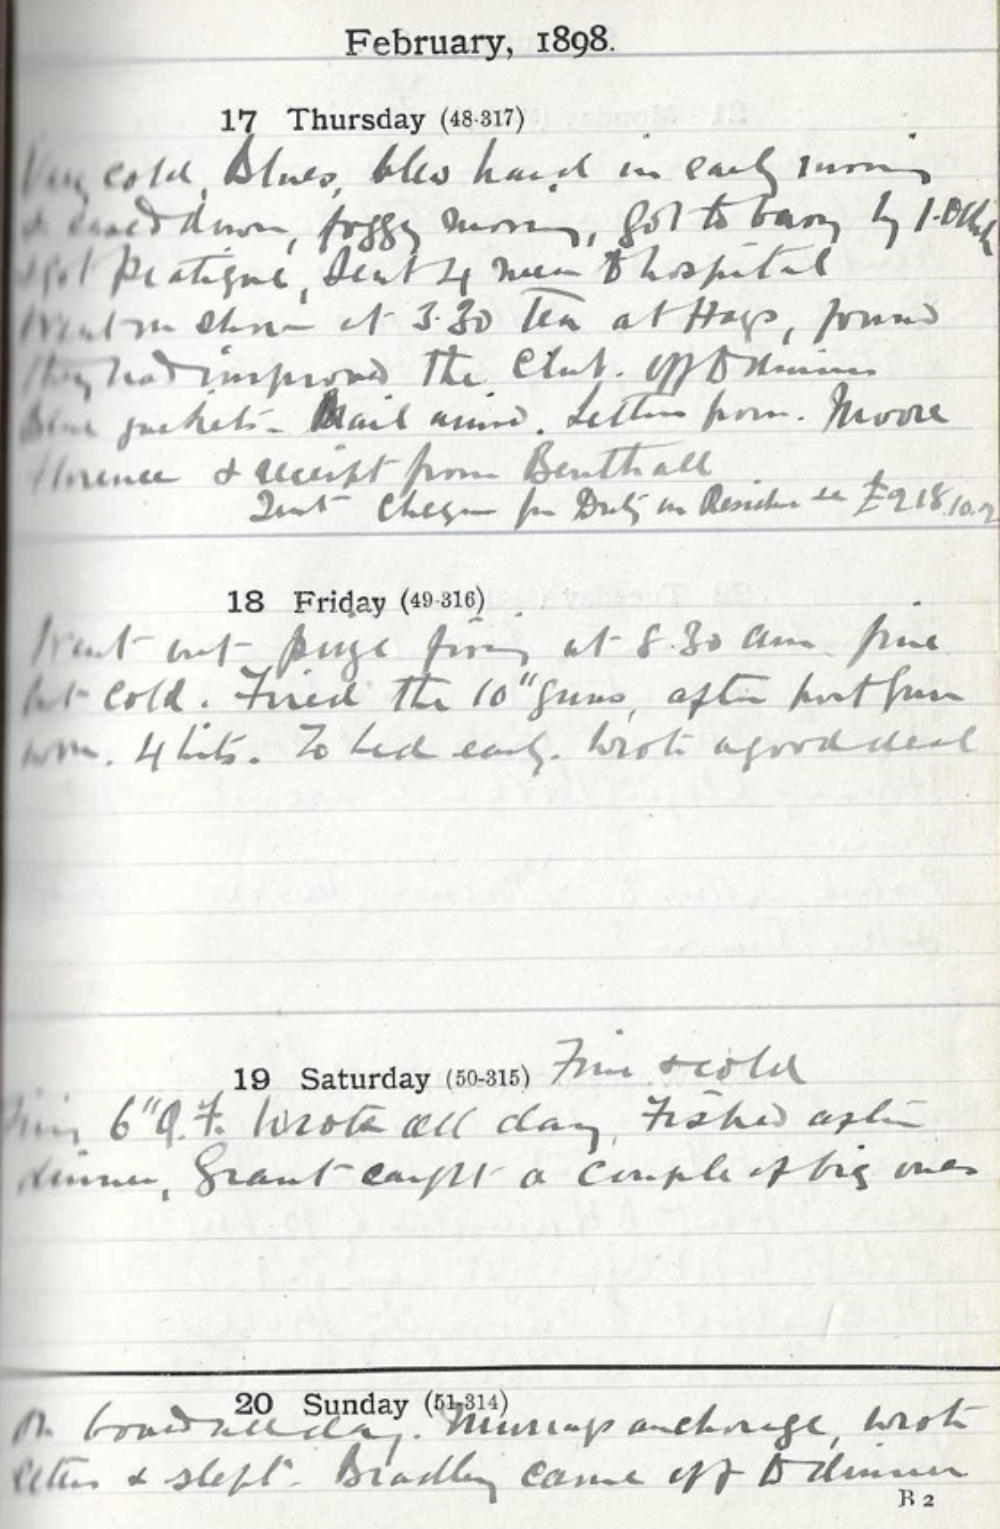 February, 1898.
17 Thursday (48-317)
Very cold, Blues, blew hard in early morning
& eased down, foggy morning, got to buoy by 1.0
& got Pratique, Sent 4 men to hospital
Went on shore at 3.30 Tea at Hags, found
they had improved the Club. off to dinner
Blue jackets - Mail arrived. Letters from. Moore
Florence & receipt from Benthall
Sent Cheque for Duty on Residue £918.10.2
18 Friday (49-316)
Went out prize firing at 8.30 am. fine
but cold. Fired the 10" guns, after port gun
won. 4 hits. To bed early. Wrote a good deal
19 Saturday (50-315) Fine & cold
Firing 6" Q.F. Wrote all day, Fished after
dinner, Grant caught a couple of big ones
20 Sunday (51-314)
On board all day. anchorage, wrote
letters & slept. Bradley came off to dinner
B 2